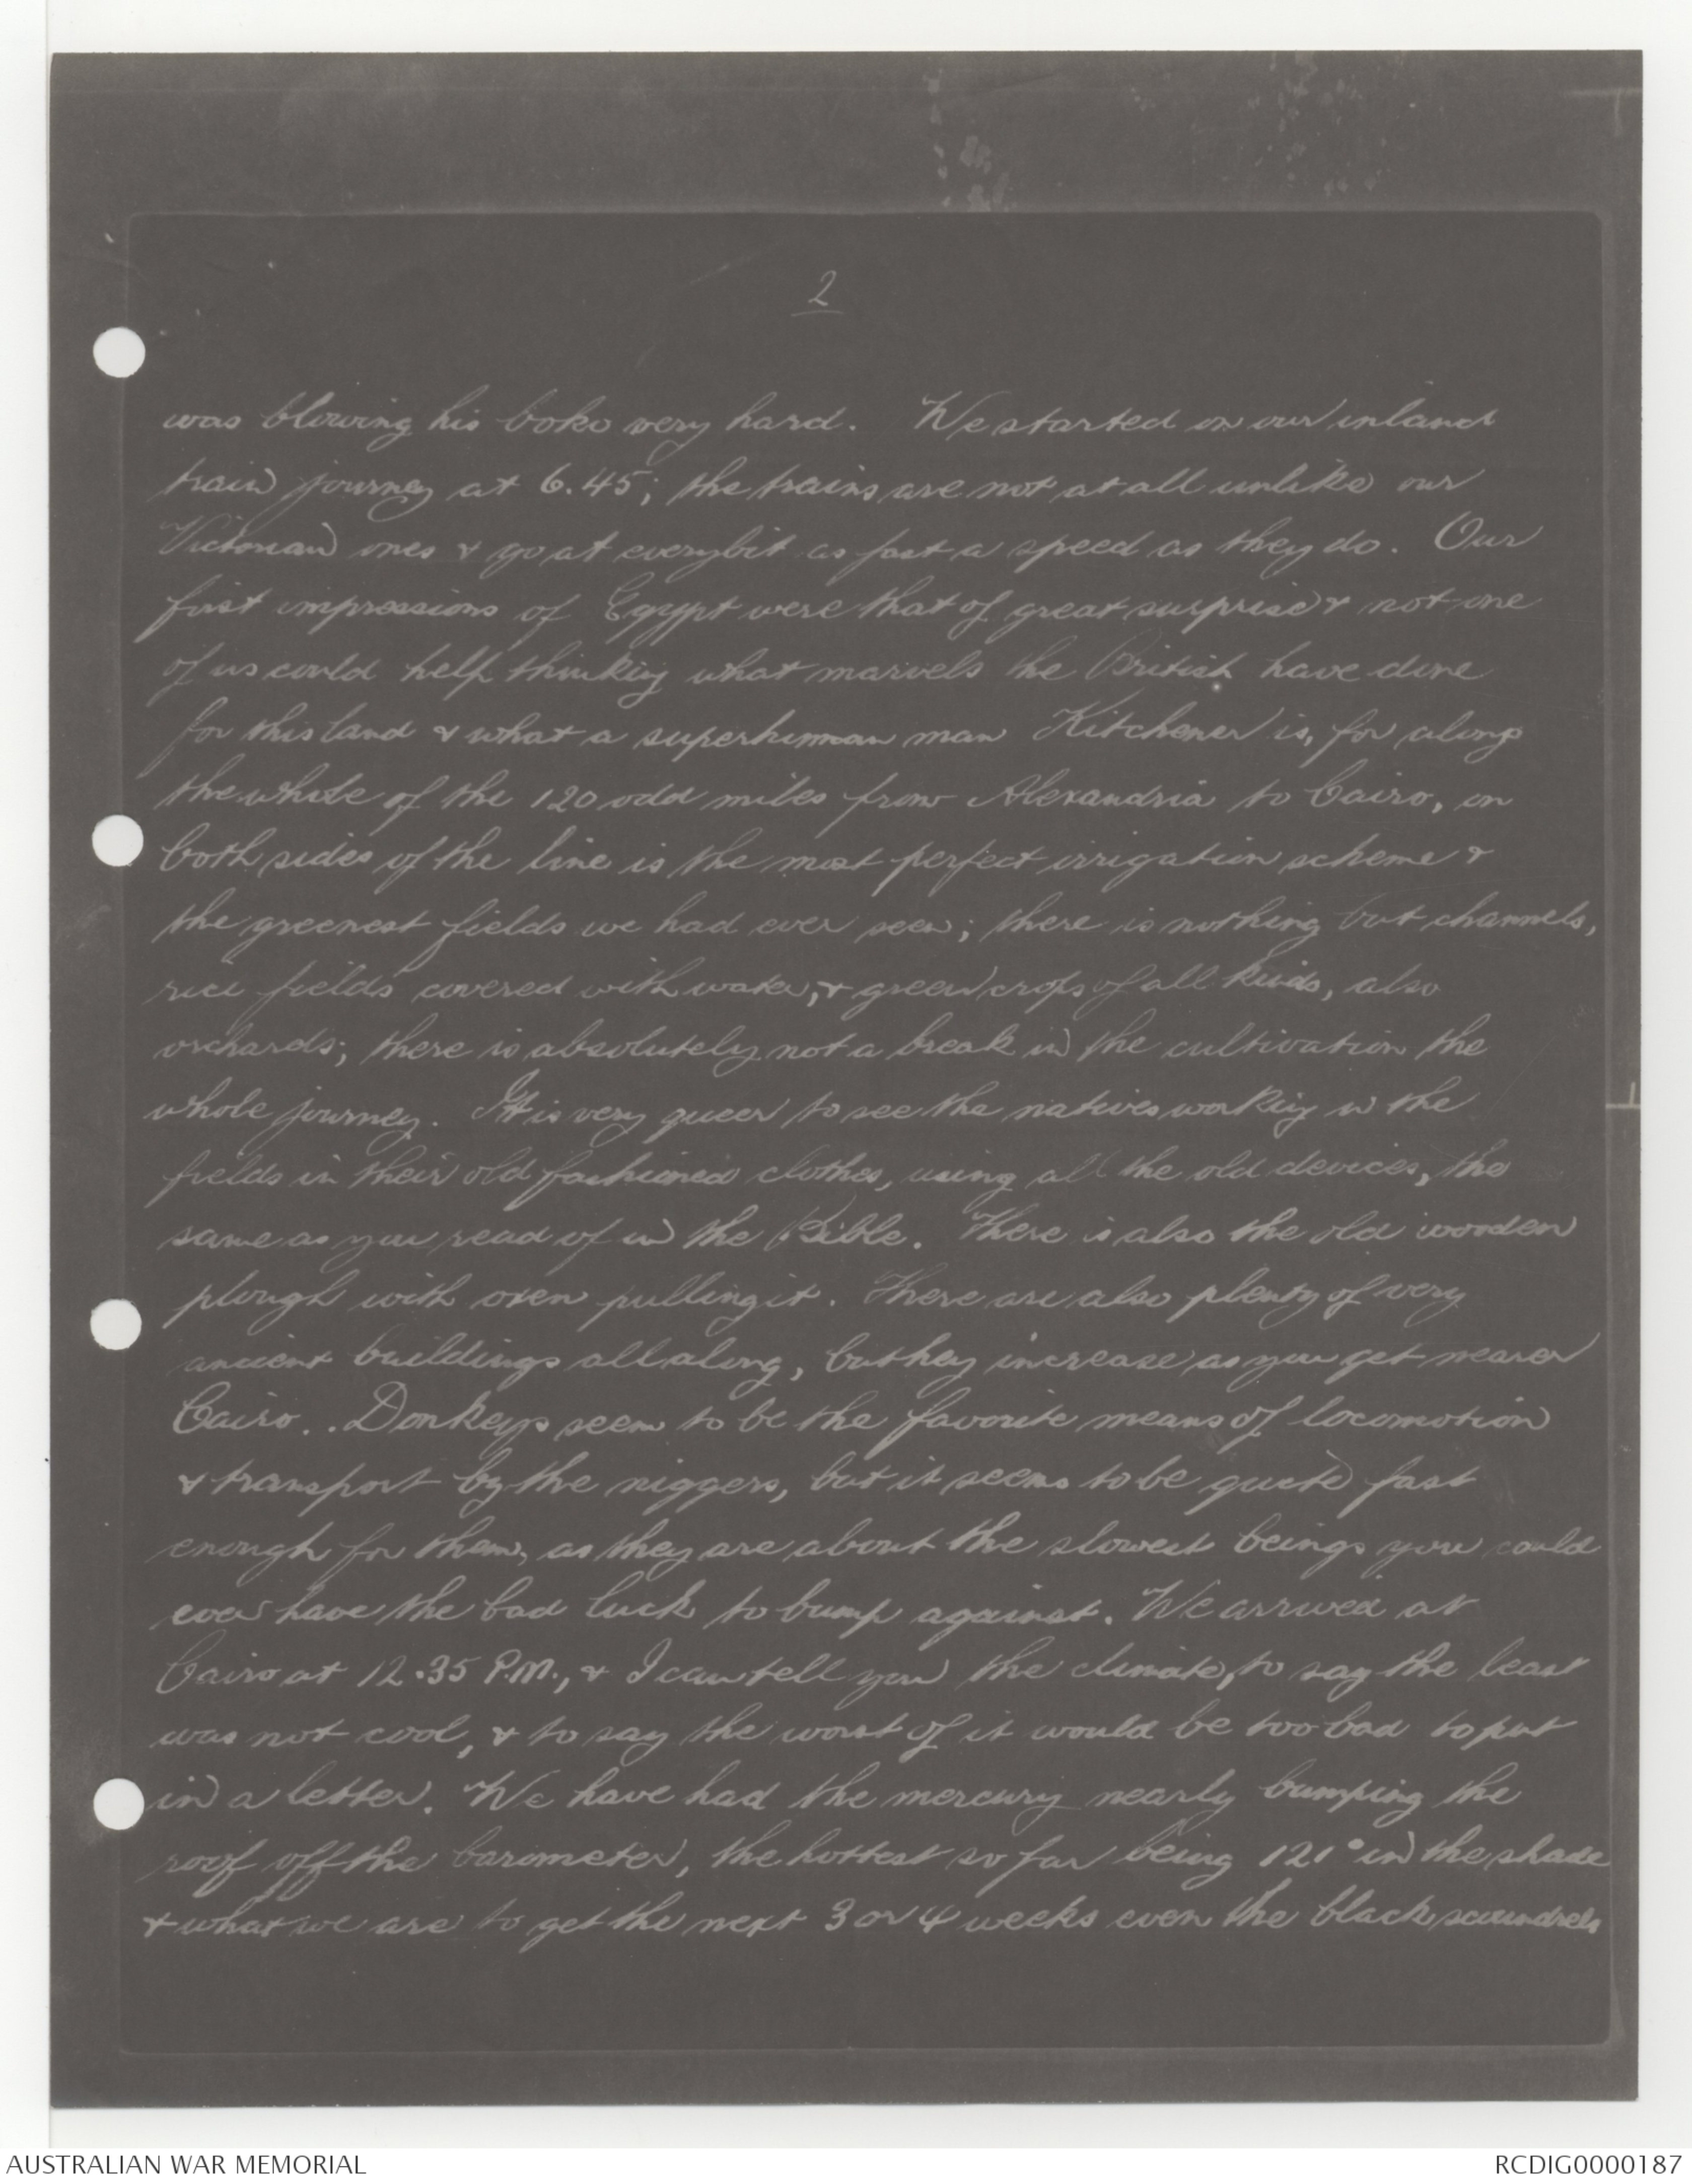 2
was blowing his boko very hard. We started on our inland
train journey at 6.45; the trains are not at all unlike our
Victorian ones & go at everybit as fast a speed as they do. Our
first impressions of Egypt were that of great surprise & not one
of us could help thinking what marvels the British have done
for this land & what a superhuman man Kitchener is, for along
the whole of the 120 odd miles from Alexandria to Cairo, on
both sides of the line is the most perfect irrigation scheme &
the greenest fields we had ever seen; there is nothing but channels,
rice fields covered with water, & green crops of all kinds, also
orchards; there is absolutely not a break in the cultivation the
whole journey. It is very queer to see the natives working in the
fields in their old fashioned clothes, using all the old devices, the
same as you read of in the Bible. There is also the old wooden
plough with oxen pulling it. There are also plenty of very
ancient buildings all along, but they increase as you get nearer
Cairo.. Donkeys seem to be the favorite means of locomotion
& transport by the niggers, but it seems to be quite fast
enough for them, as they are about the slowest beings you could
ever have the bad luck to bump against. We arrived at
Cairo at 12.35 P.M., & I can tell you the climate, to say the least
was not cool, & to say the worst of it would be too bad to put
in a letter. We have had the mercury nearly bumping the
roof off the barometer, the hottest so far being 121° in the shade
& what we are to get the next 3 or 4 weeks even the black scoundrels
AUSTRALIAN WAR MEMORIAL
RCDIG0000187